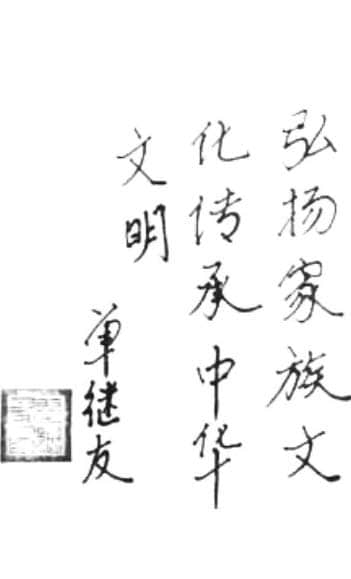 弘扬家族文
化传承中华
文明
单继友